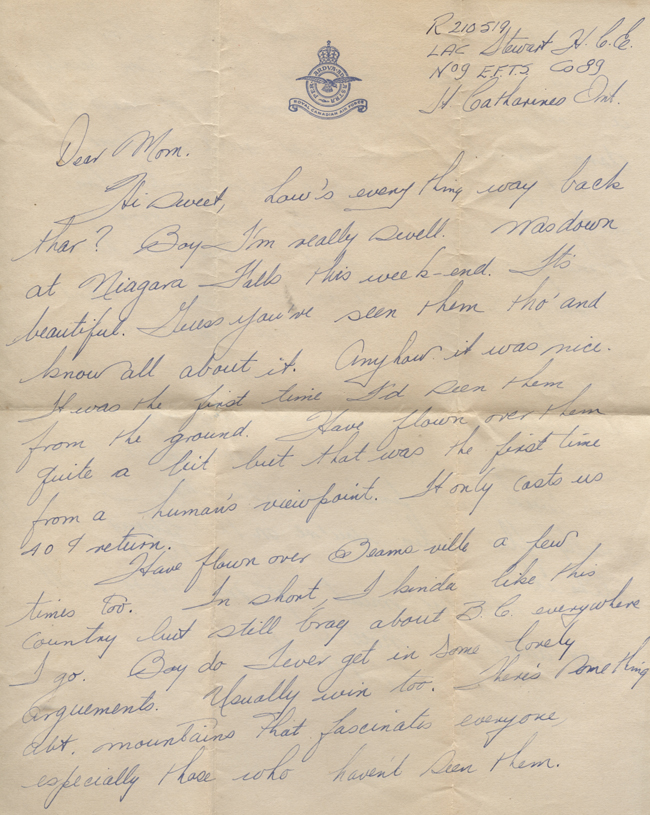 R 210519
LAC Stewart H.C.E.
No 9 E.F.T.S. Co 89
St Catharines Ont.
PER ARDUA AD ASTRA
ROYAL CANADIAN AIR FORCE
Dear Mom.
Hi sweet, how's every thing way back
thar? Boy I'm really swell. Was down
at Niagara Falls this week-end. It's
beautiful. Guess you've seen them tho' and
know all about it. Anyhow it was nice.
It was the first time I'd seen them
from the ground. Have flown over them
quite a bit but that was the first time
from a human's viewpoint. It only costs us
40 ¢ return.
Have flown over Beamsville a few
times too. In short, I kinda like this
country but still brag about B.C. everywhere
I go. Boy do I ever get in some lovely
arguements. Usually win too. There's something
abt. mountains that fascinates everyone
especially those who haven't seen them.